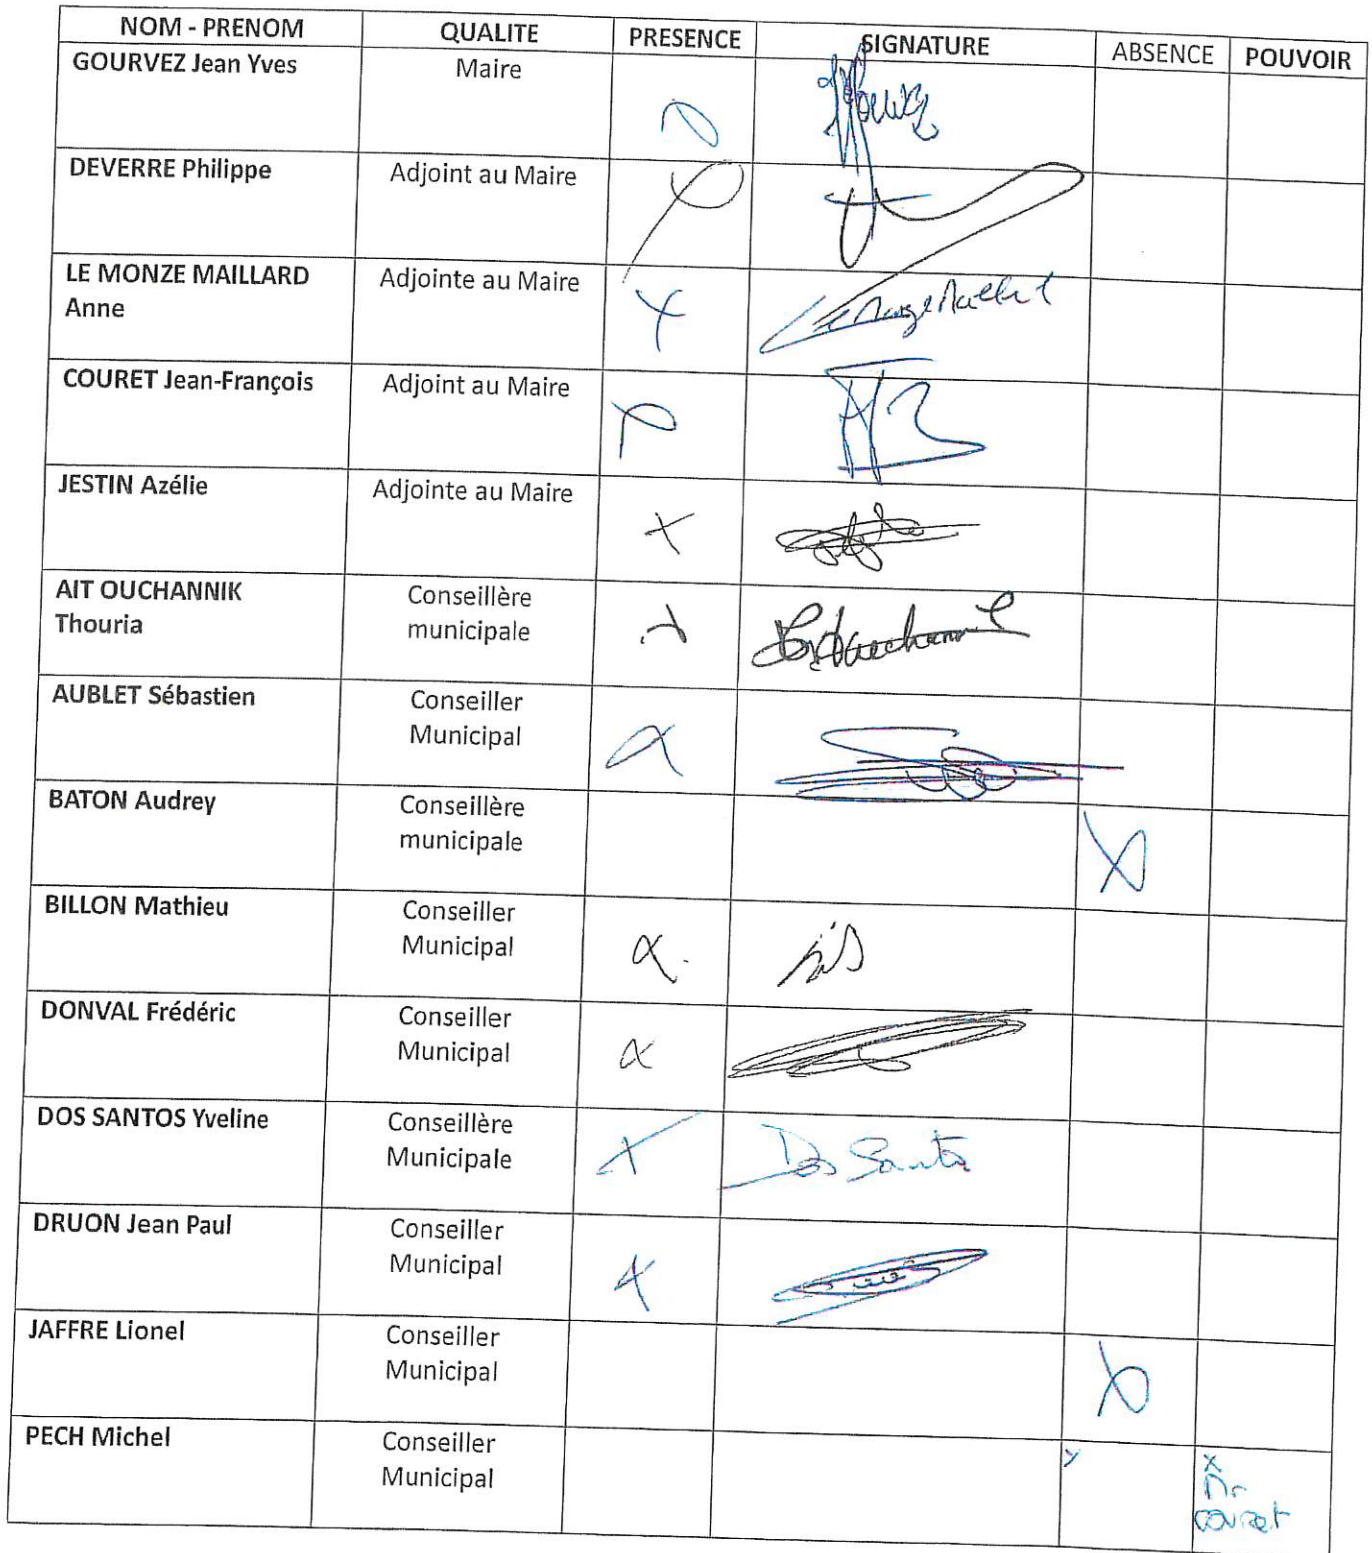 NOM - PRENOM QUALITE PRESENCE SIGNATURE ABSENCE POUVOIR
GOURVEZ Jean Yves Maire
DEVERRE Philippe Adjoint au Maire
LE MONZE MAILLARD Adjointe au Maire
Anne
COURET Jean-François Adjoint au Maire
JESTIN Azélie Adjointe au Maire
AIT OUCHANNIK Conseillère
Thouria municipale
AUBLET Sébastien Conseiller
Municipal
BATON Audrey Conseillère
municipale
BILLON Mathieu Conseiller
Municipal
DONVAL Frédéric Conseiller
Municipal
DOS SANTOS Yveline Conseillère
Municipale Dos Santos
DRUON Jean Paul Conseiller
Municipal
JAFFRE Lionel Conseiller
Municipal
PECH Michel Conseiller x x
Municipal Mr
couret